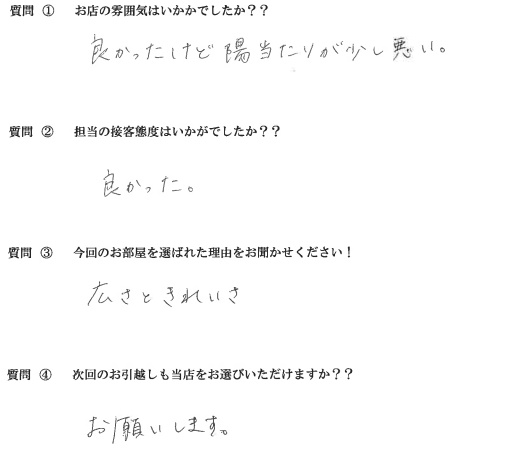 質問 ① お店の雰囲気はいかかでしたか？？
良かったけど陽当たりが少し悪い。
質問 ② 担当の接客態度はいかがでしたか？？
良かった。
質問 ③ 今回のお部屋を選ばれた理由をお聞かせください！
広さときれいさ
質問 ④ 次回のお引越しも当店をお選びいただけますか？？
お願いします。